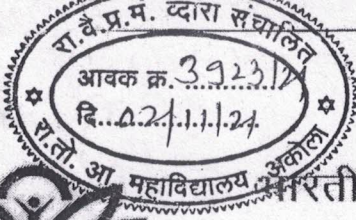 रा.वै.प्र.मं. व्दारा संचालित
आवक क्र. 3923/21
दि. 02/11/21
रा.तो. आ महाविद्यालय अकोला
भारती